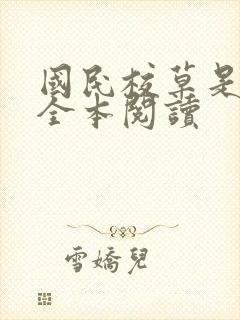 國民校草是
全本閱讀
雪嬌兒